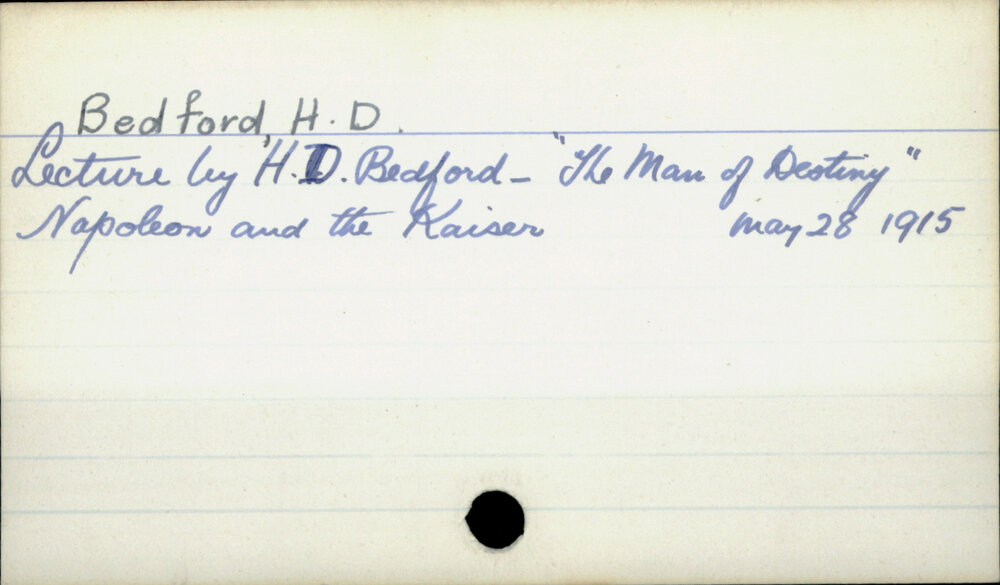 Bedford, H. D.
Lecture by H. D. Bedford - "The Man of Destiny"
Napoleon and the Kaiser May 28 1915